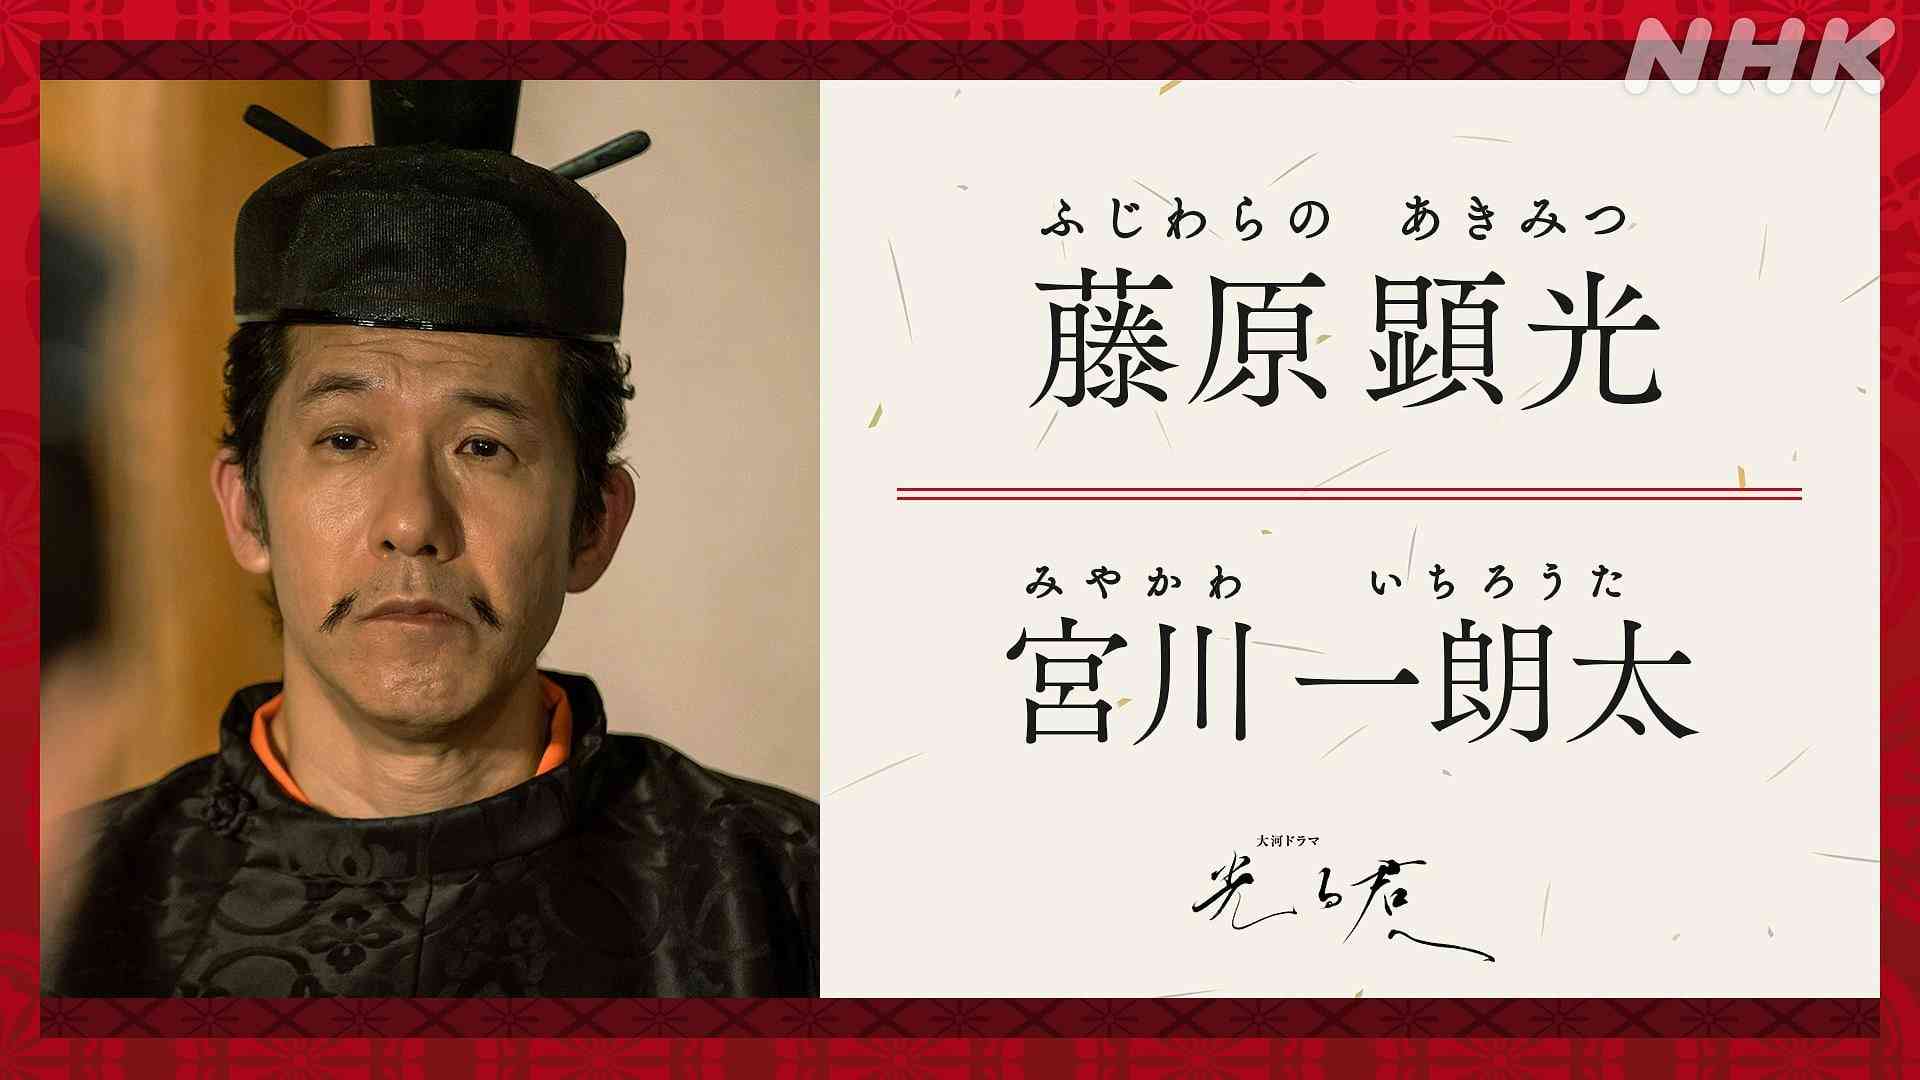 NHK
ふじわらの あきみつ
藤原 顕光
みやかわ いちろうた
宮川 一朗太
大河ドラマ
光る君へ